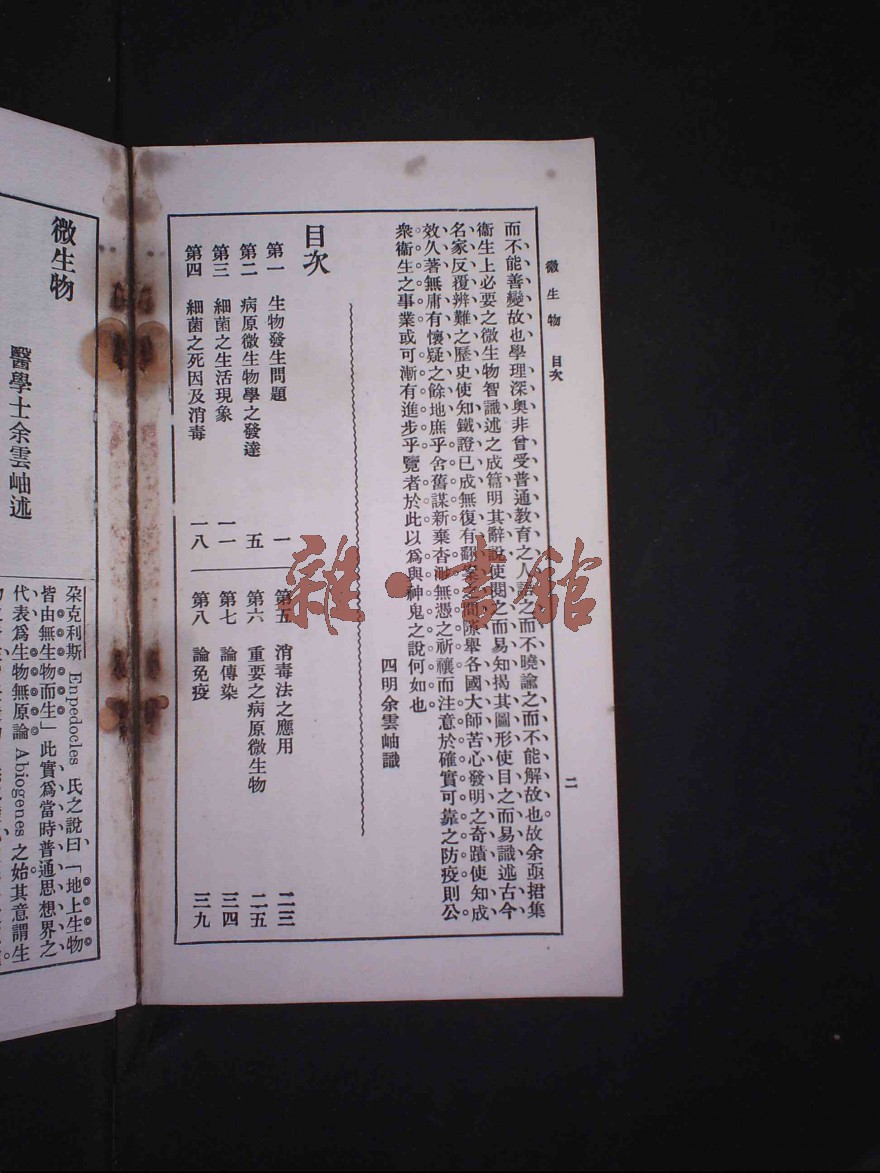 微生物 目次
二
而不能善變故也學理深奧非曾受普通教育之人語之而不曉諭之而不能解故也故余亟捃集
衞生上必要之微生物智識述之成篇明其辭說使閱之而易知揭其圖形使目之而易識述古今
名家反覆辨難之歷史使知鐵證已成無復有翻案之間隙舉各國大師苦心發明之奇蹟使知成
效久著無庸有懷疑之餘地庶乎舍舊謀新棄杳渺無憑之祈禳而注意於確實可靠之防疫則公
衆衞生之事業或可漸有進步乎覽者於此以爲與神鬼之說何如也
四明余雲岫識
目次
第一 生物發生問題 一
第二 病原微生物學之發達 五
第三 細菌之生活現象 一一
第四 細菌之死因及消毒 一八
第五 消毒法之應用 二三
第六 重要之病原微生物 二五
第七 論傳染 三四
第八 論免疫 三九
微生物
醫學士余雲岫述
朶克利斯 Enpedocles 氏之說曰「地上生物
皆由無生物而生」此實爲當時普通思想界之
代表爲生物無原論 Abiogenes 之始其意謂生
雜·書館